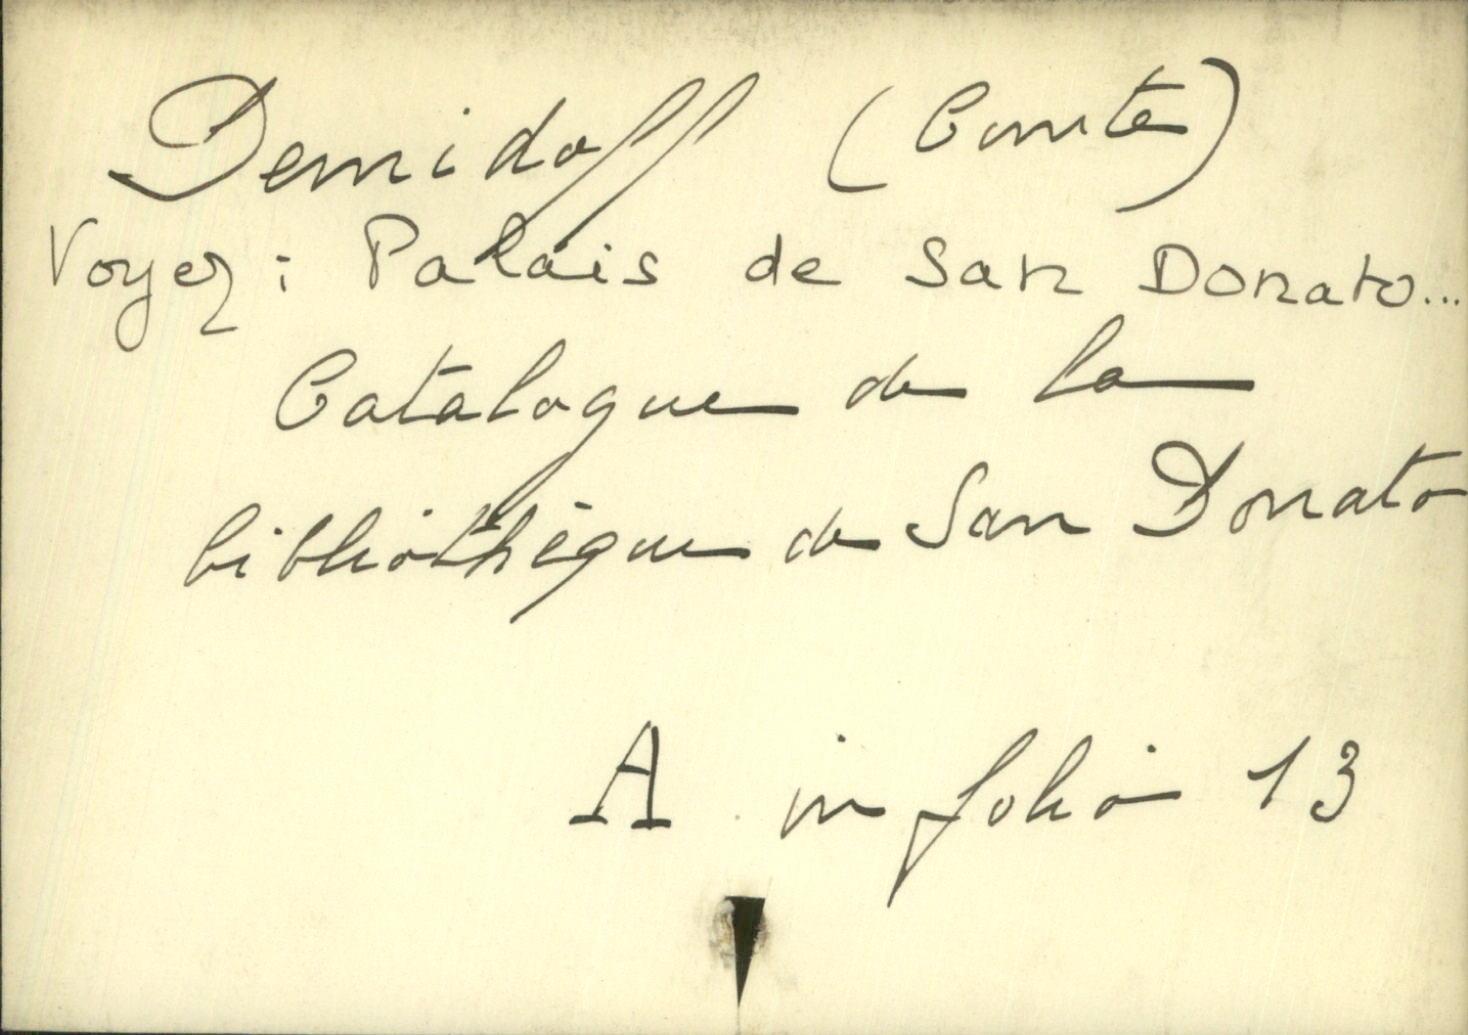 Demidoff (Comte)
Voyez : Palais de San Donato...
Catalogue de la
bibliothèque de San Donato
A in folio 13